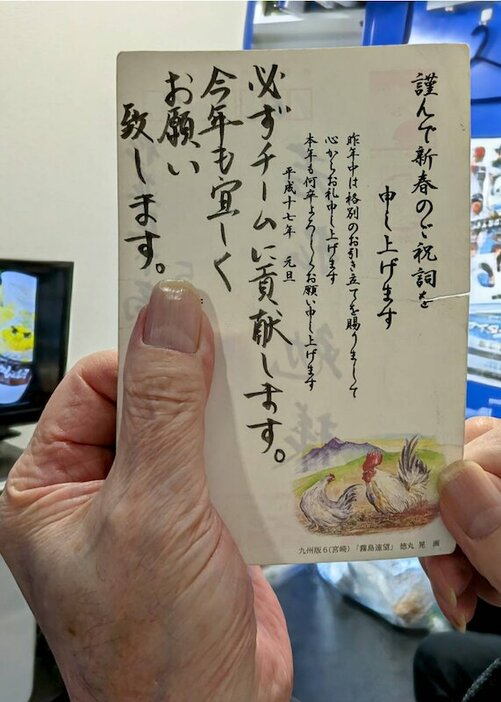 謹んで新春のご祝詞を
申し上げます
昨年中は格別のお引き立てを賜りまして
心からお礼申し上げます
本年も何卒よろしくお願い申し上げます
平成十七年 元旦
必ずチームに貢献します。
今年も宜しく
お願い
致します。
九州版6(宮崎)「霧島遠望」 徳丸 晃 画